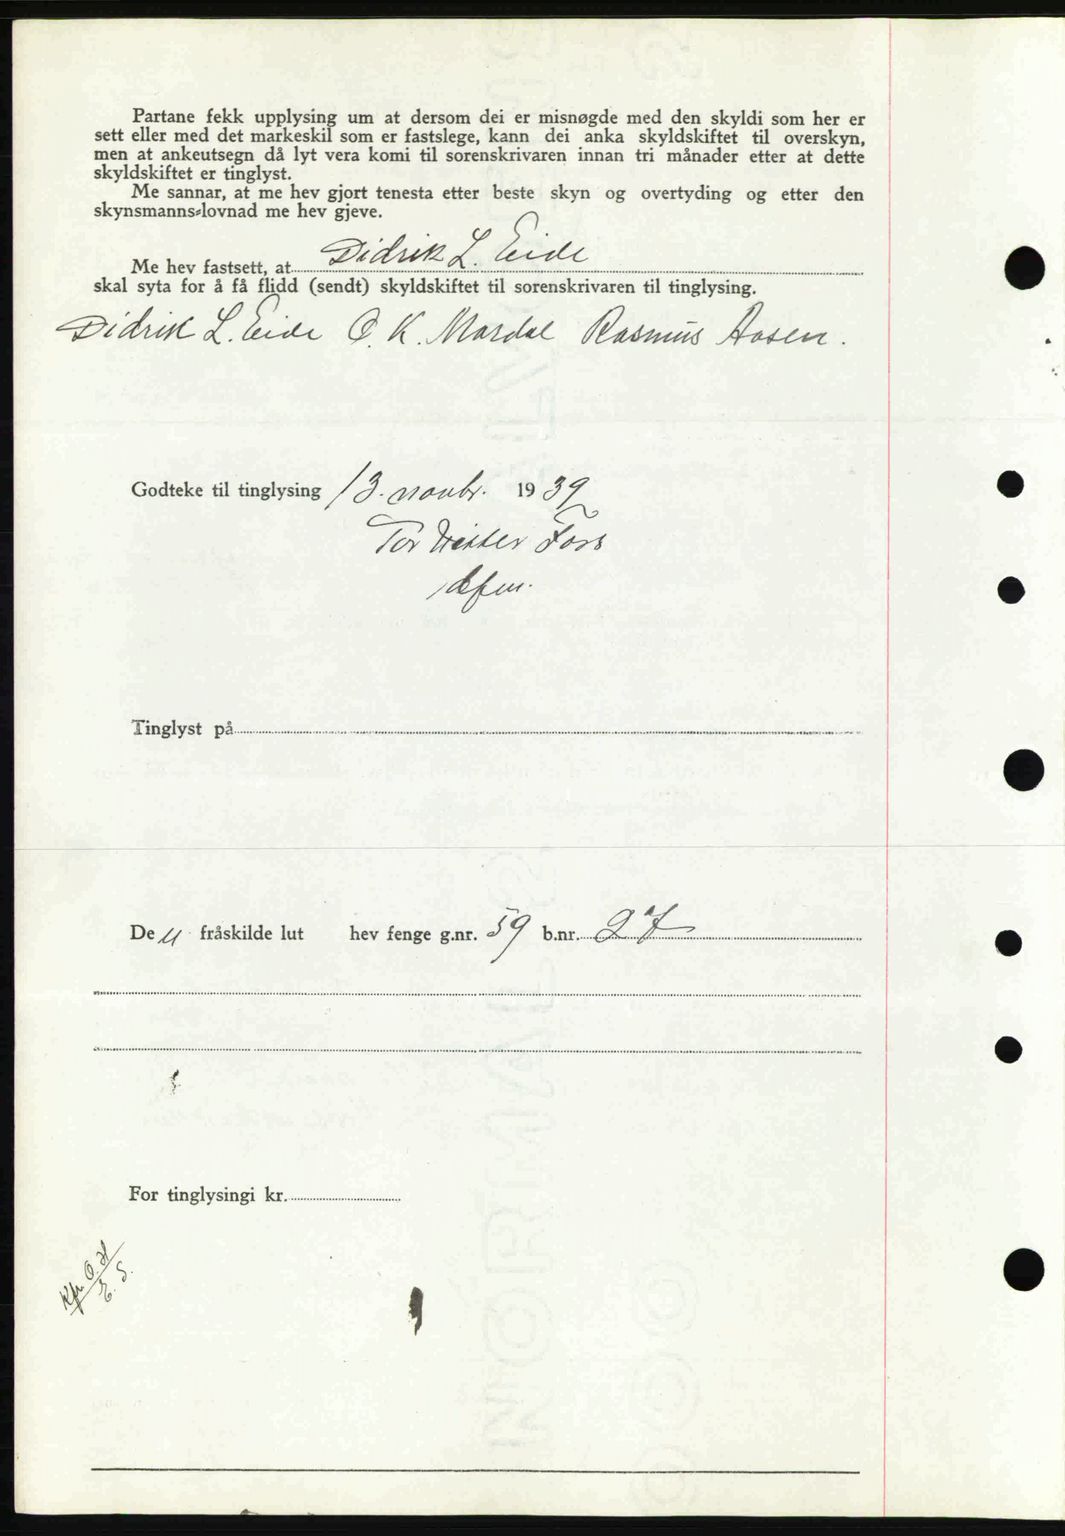 Partane fekk upplysing um at dersom dei er misnøgde med den skyldi som her er
sett eller med det markeskil som er fastslege, kann dei anka skyldskiftet til overskyn,
men at ankeutsegn då lyt vera komi til sorenskrivaren innan tri månader etter at dette
skyldskiftet er tinglyst.
Me sannar, at me hev gjort tenesta etter beste skyn og overtyding og etter den
skynsmanns-lovnad me hev gjeve.
Me hev fastsett, at Didrik L. Eide
skal syta for å få flidd (sendt) skyldskiftet til sorenskrivaren til tinglysing.
Didrik L. Eide O. K. Mardal Rasmus Aasen.
Godteke til tinglysing 13. novbr. 1939
Tor Foss
Tinglyst på
Den fråskilde lut hev fenge g.nr. 59 b.nr. 27
For tinglysingi kr.
Kfr. O. H
E. S.